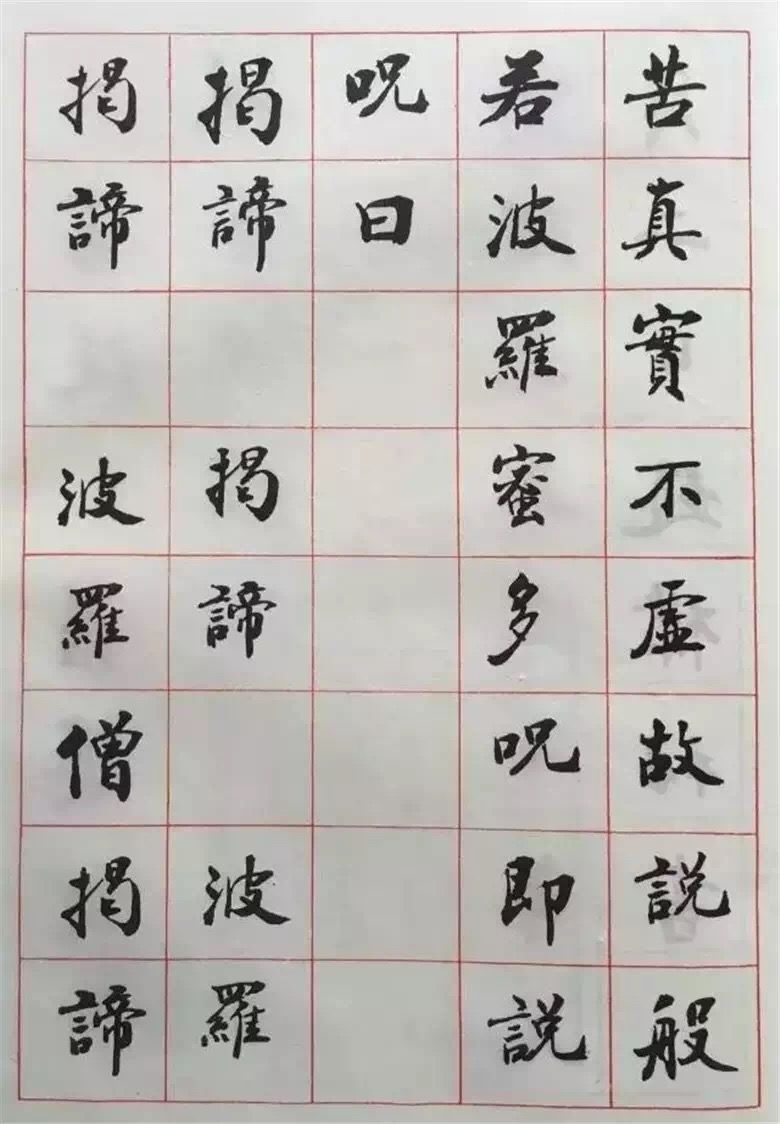 苦真實不虛故說般
若波羅蜜多呪即說
呪曰
揭諦 揭諦 波羅
揭諦 波羅僧揭諦